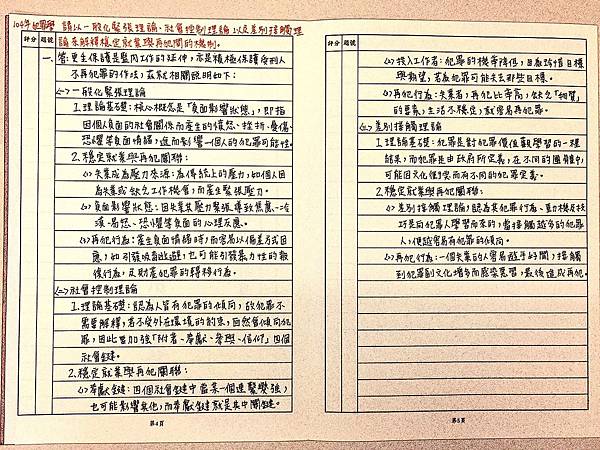 104年犯罪學 請以一般化緊張理論、社會控制理論以及差別接觸理
論來解釋穩定就業與再犯間的機制。
評分 題號
一、答:更生保護是監內工作的延伸,亦是積極保護受刑人
不再犯罪的作法,茲就相關說明如下:
(一)一般化緊張理論
1.理論基礎:核心概念是「負面影響狀態」,即指
因個人負面的社會關係而產生的憤怒、挫折、憂傷、
恐懼等負面情緒,進而影響一個人的犯罪可能性。
2.穩定就業與再犯關聯:
(1)失業成為壓力來源:為傳統上的壓力,如個人因
為失業或缺乏工作機會,而產生緊張壓力。
(2)負面影響狀態:因失業其壓力緊張導致焦慮、冷
漠、易怒、恐懼等負面的心理反應。
(3)再犯行為:產生負面情緒時,而容易以偏差方式因
應,如引發吸毒逃避,也可能引發暴力性的報
復行為,及財產犯罪的轉移行為。
(二)社會控制理論
1.理論基礎:認為人皆有犯罪的傾向,故犯罪不
需要解釋,若不受外在環境的約束,自然會傾向犯
罪,因此要加強「附著、奉獻、參與、信仰」四個
社會鍵。
2.穩定就業與再犯關聯:
(1)奉獻鍵:四個社會鍵中當某一個連繫變強,
也可能影響其他,而奉獻鍵就是其中關鍵。
第4頁
評分 題號
(2)投入工作者:犯罪的機會降低,因為珍惜目標
與期望,害怕犯罪可能失去那些目標。
(3)再犯行為:失業者,再犯比率高,缺乏「韌質」
的要素,生活不穩定,就容易再犯罪。
(三)差別接觸理論
1.理論基礎:犯罪是對犯罪價值觀學習的一種
結果,而犯罪是由政府所定義,在不同的團體中,
可能因文化信仰而有不同的犯罪定義。
2.穩定就業與再犯關聯:
(1)差別接觸理論,認為其犯罪行為、動機及技
巧是向犯罪人學習而來的,當接觸越多的犯罪
人,便越容易有犯罪的傾向。
(2)再犯行為:一個失業的人容易遊手好閒,接觸
到犯罪副文化增多而感染惡習,最後造成再犯。
第5頁